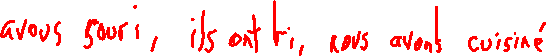 avous souri, ils ont ri, nous avons cuisiné